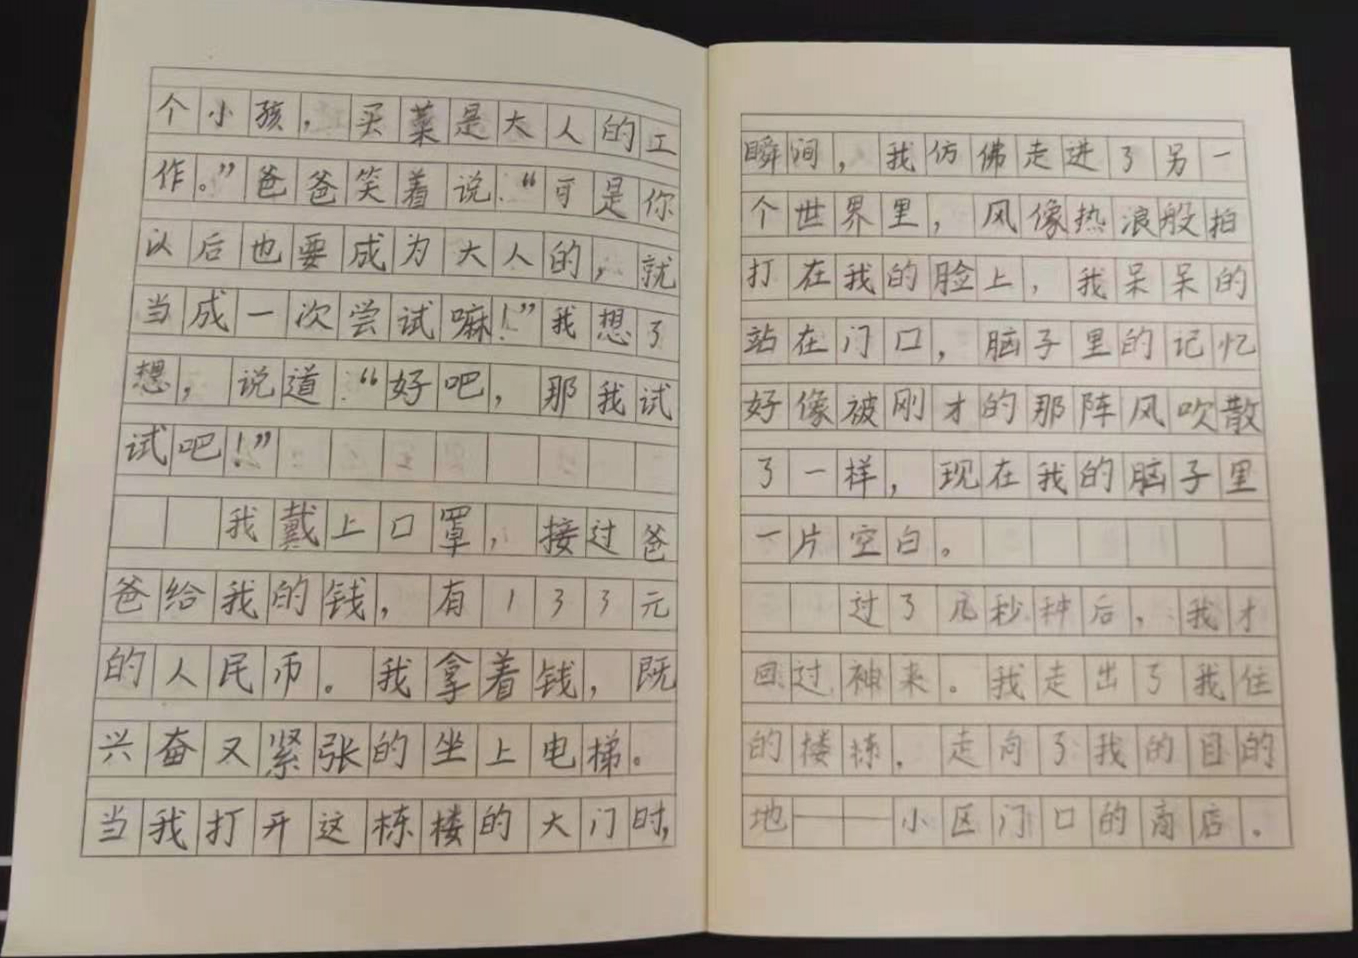 个小孩，买菜是大人的工
作。”爸爸笑着说：“可是你
以后也要成为大人的，就
当成一次尝试嘛！”我想了
想，说道：“好吧，那我试
试吧！”
我戴上口罩，接过爸
爸给我的钱，有133元
的人民币。我拿着钱，既
兴奋又紧张的坐上电梯。
当我打开这栋楼的大门时，
瞬间，我仿佛走进了另一
个世界里，风像热浪般拍
打在我的脸上，我呆呆的
站在门口，脑子里的记忆
好像被刚才的那阵风吹散
了一样，现在我的脑子里
一片空白。
过了几秒种后，我才
回过神来。我走出了我住
的楼栋，走向了我的目的
地——小区门口的商店。